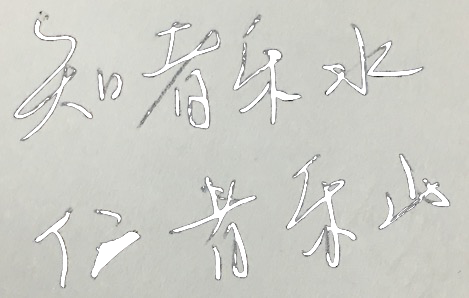 知者乐水
仁者乐山